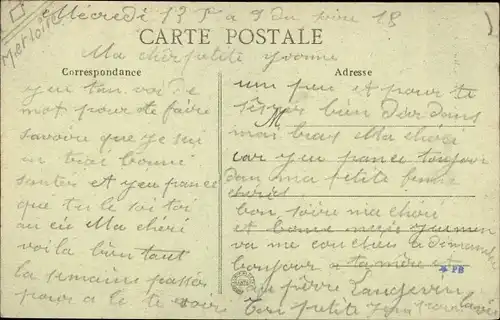 Mécredi 13 a 9 du soire 18
Merloile
CARTE POSTALE
Ma chér petite Yvonne
Correspondance
Adresse
yeu ten voi de
mot pour te faire
savoire que ye sui
un trai bonne
santér et yeu pance
que tu le soi toi
au cie Ma chéri
voila bien tant
la semaine passés
pour a le te voire
un peu et pour te
bien dor dans
M
mai bras Ma chére
car yeu pance toujour
dan ma petite femme
chéries
bon soire ma chéri
et bonne
va me coucher a dimanche
bonjour a ta mère et
PB
au père Langevin
Ton petit pour la vie